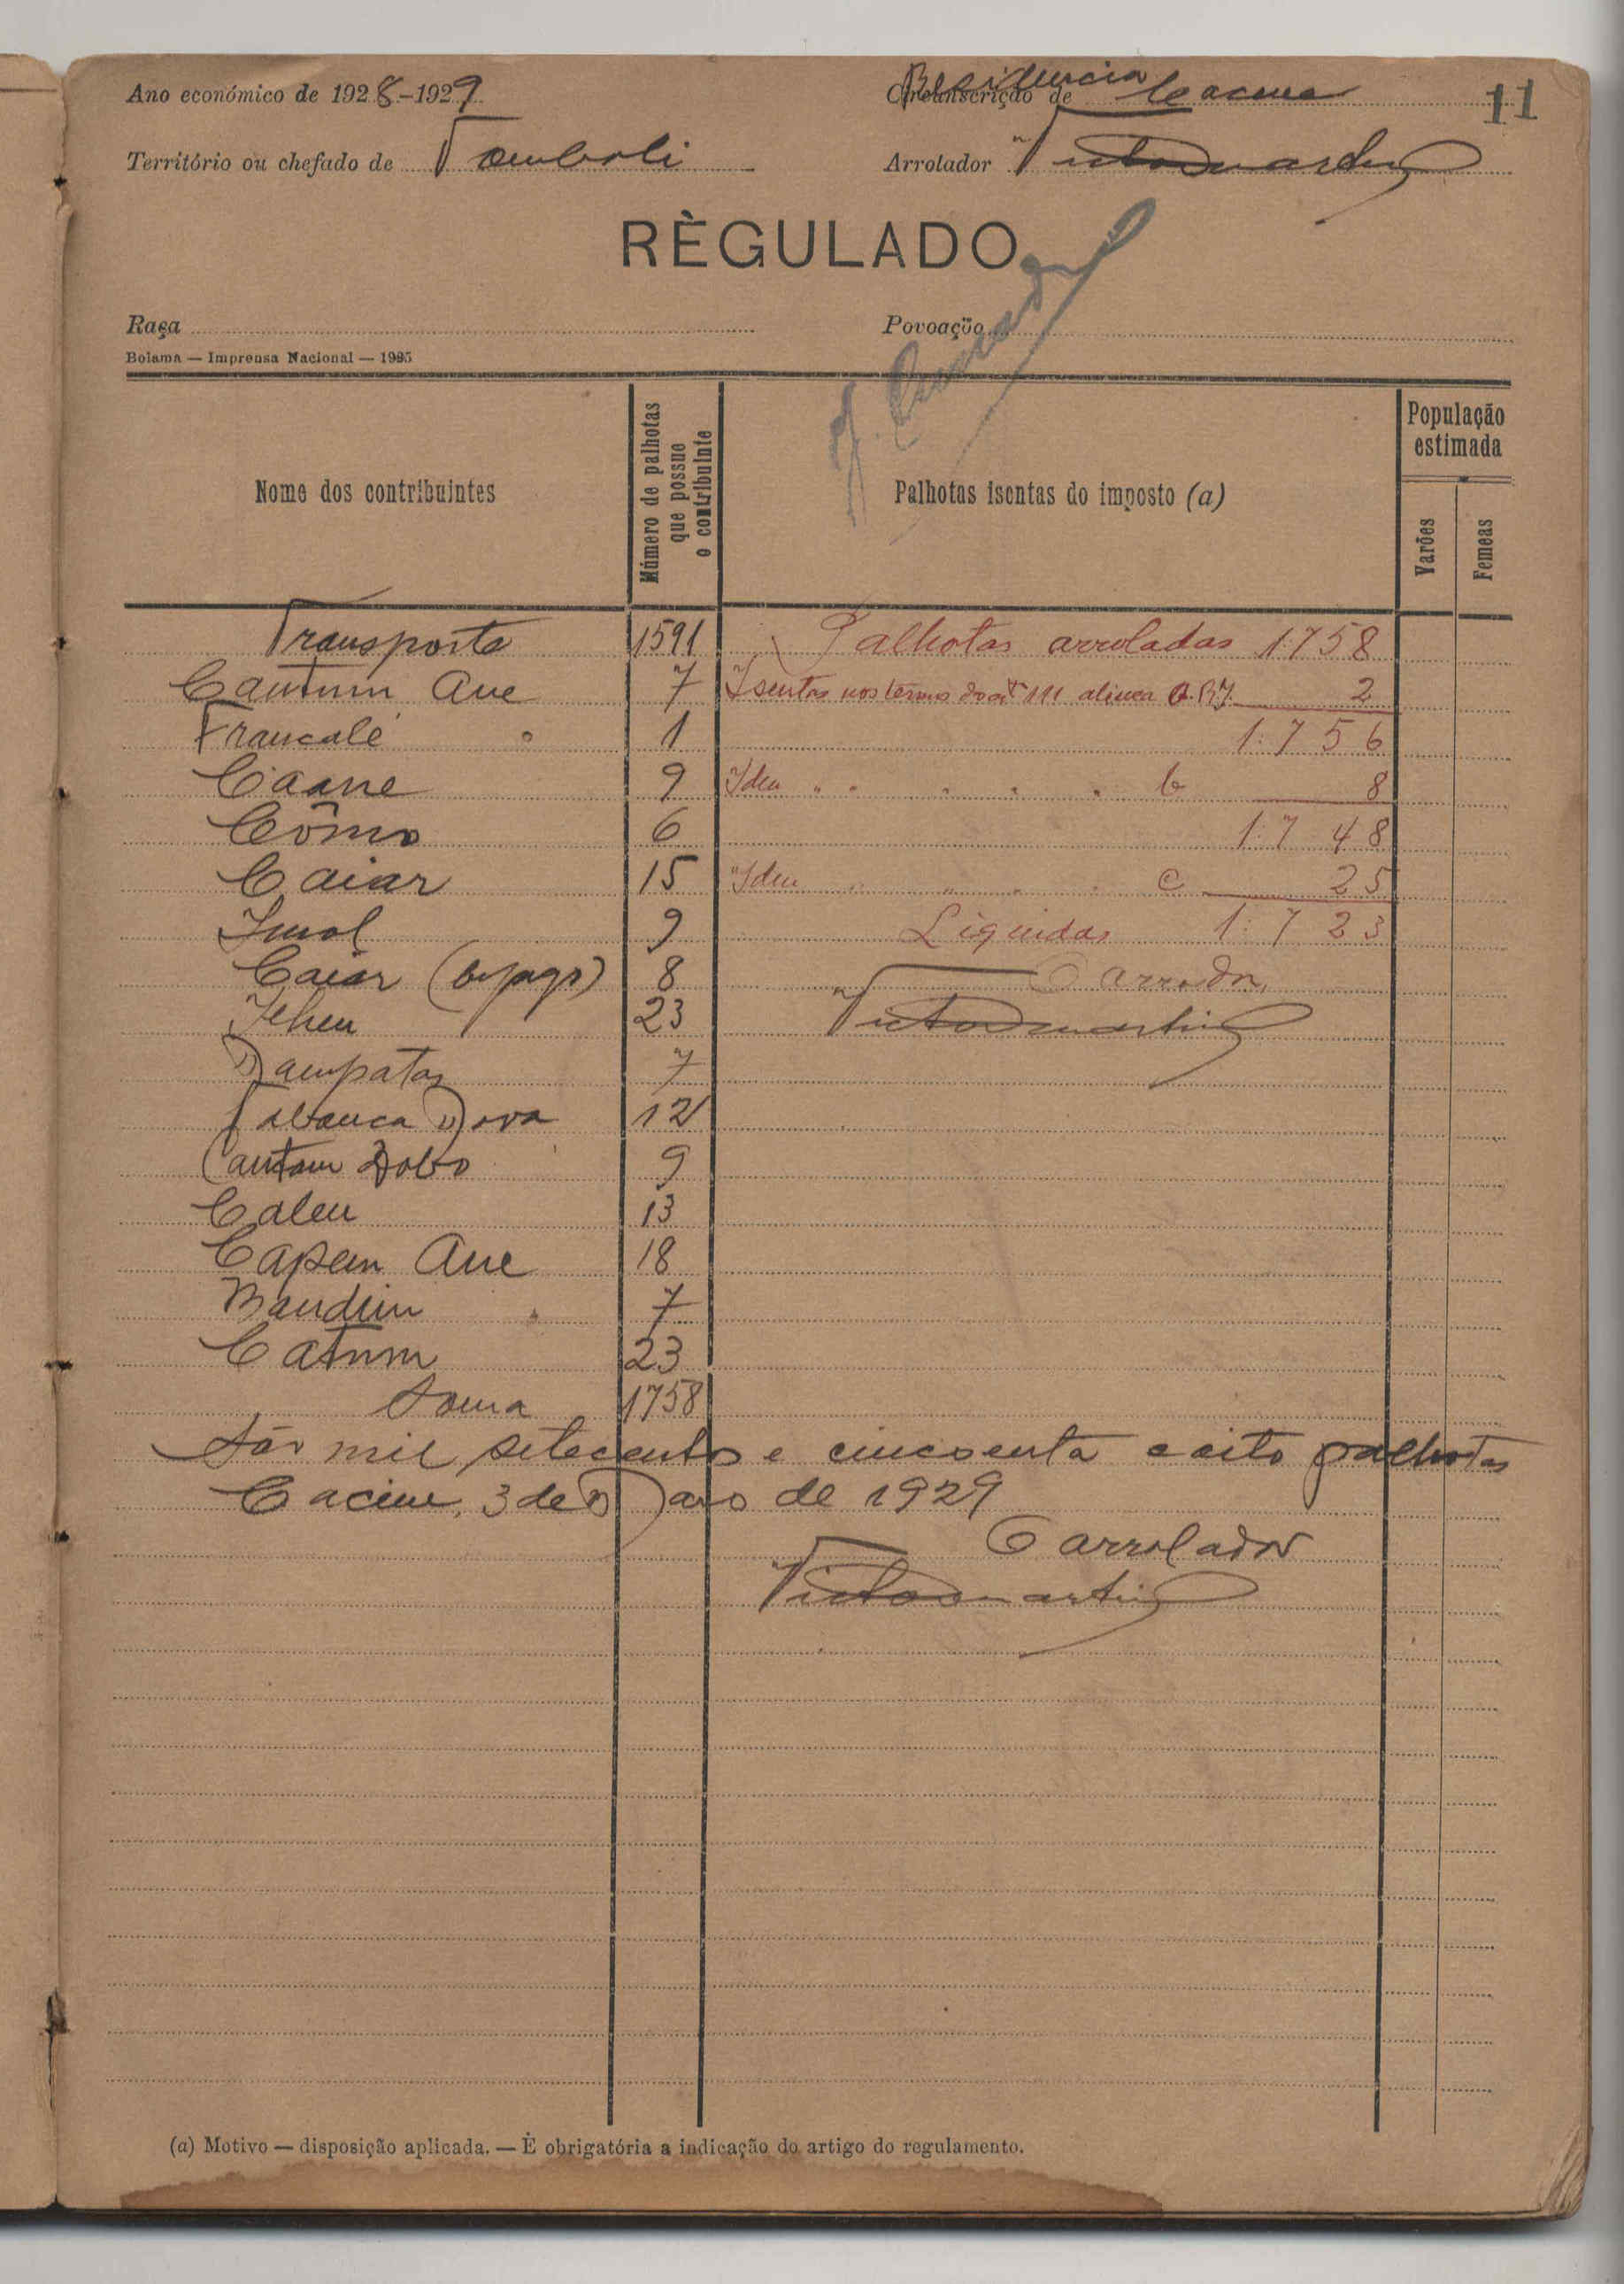 Ano económico de 1928-1929
Residencia Cacine
Circunscrição de
11
Território ou chefado de Tomboli
Arrolador Victor Martins
RÈGULADO
Raça
Povoação
Bolama — Imprensa Nacional — 1925
Nome dos contribuintes
Número de palhotas que possue o contribuinte
Palhotas isentas do imposto (a)
População estimada
Varões
Femeas
Transporte 1591 Palhotas arroladas 1.758
Cautum Ane 7 Isentas nos têrmos do artº 111 alinea a. R.I. 2
Francalé " 1 1:756
Caane 9 Idem " " " " " b 8
Cômo 6 1:748
Caiar 15 Idem " " " " c 25
9 Liquidas 1:723
Caiar (bijagó) 8 O arrolador
23 Victor Martins
Nampatas 7
Tabanca Nova 12
Cantam Dobo 9
Caleu 13
Ane 18
" 7
Catum 23
Soma 1758
São mil setecentos e cincoenta e oito palhotas
Cacine, 3 de Março de 1929
O arrolador
Victor Martins
(a) Motivo — disposição aplicada. — È obrigatória a indicação do artigo do regulamento.